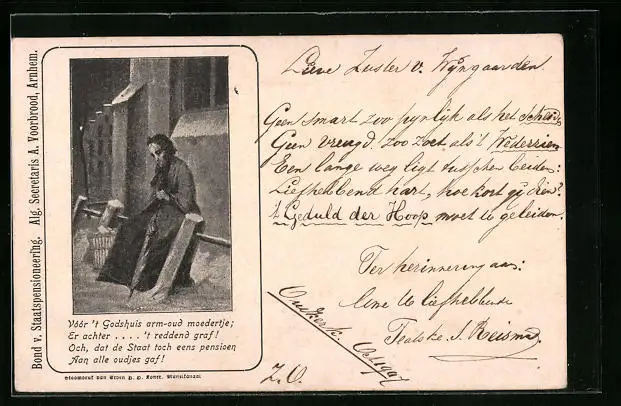 Bond v. Staatspensioneering. Alg. Secretaris A. Voorbrood, Arnhem.
Vóór 't Godshuis arm-oud moedertje;
Er achter . . . . 't reddend graf!
Och, dat de Staat toch eens pensioen
Aan alle oudjes gaf!
Lieve Zuster v. Wijngaarden.
Geen smart zoo pijnlijk als het scheiden
Geen vreugd zoo zoet als 't Wederzien
Een lange weg ligt tusschen beiden:
Liefhebbend hart, hoe kort
't Geduld der Hoop moet te geleiden.
Ter herinnering aan:
Uwe U liefhebbende
Oct. 1907
Z.O.